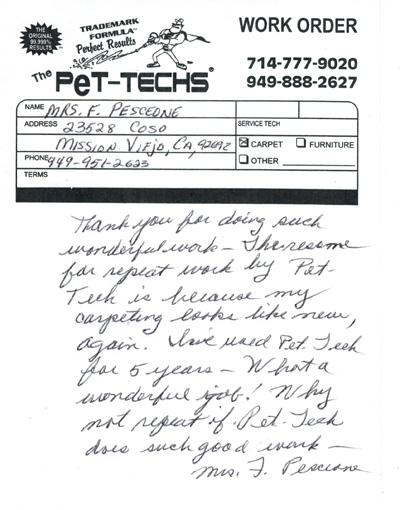 THE ORIGINAL 99.999% RESULTS
TRADEMARK FORMULA™
Perfect Results
The PeT-TECHS®
WORK ORDER
714-777-9020
949-888-2627
NAME MRS. F. PESCEONE
ADDRESS 23528 COSO
MISSION VIEJO, CA, 92692
PHONE 949-951-2623
TERMS
SERVICE TECH
☒ CARPET ☐ FURNITURE
☐ OTHER
Thank you for doing such
wonderful work - The reason
for repeat work by Pet-
Tech is because my
carpeting looks like new,
again. I've used Pet-Tech
for 5 years - What a
wonderful job! Why
not repeat if Pet-Tech
does such good work -
Mrs. F. Pescione